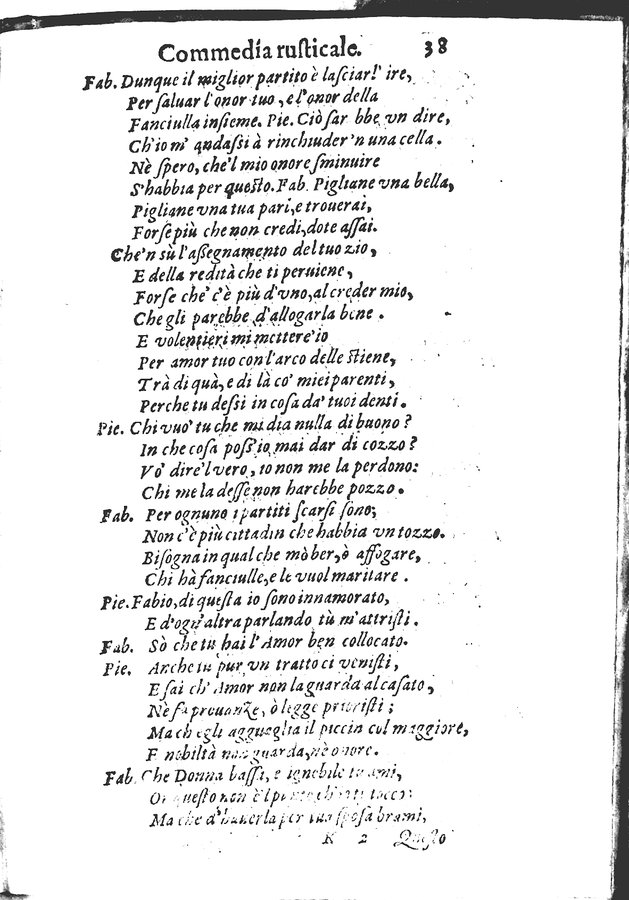 Commedia ruſticale. 38
Fab. Dunque il miglior partito è laſciarl' ire,
Per ſaluar l'onor tuo, e l'onor della
Fanciulla inſieme. Pie. Ciò ſar bbe vn dire,
Ch'io m' andaſſi à rinchiuder'n una cella.
Nè ſpero, che'l mio onore ſminuire
S'habbia per queſto. Fab. Pigliane vna bella,
Pigliane vna tua pari, e trouerai,
Forſe più che non credi, dote aſſai.
Che'n sù l'aſſegnamento del tuo zio,
E della redità che ti peruiene,
Forſe che c'è più d'vno, al creder mio,
Che gli parebbe d'allogarla bene.
E volentieri mi mettere'io
Per amor tuo con l'arco delle ſtiene,
Trà di quà, e di là co' miei parenti,
Perche tu deſſi in coſa da' tuoi denti.
Pie. Chi vuo' tu che mi dia nulla di buono?
In che coſa poſſ'io mai dar di cozzo?
Vo' dire'l vero, io non me la perdono:
Chi me la deſſe non harebbe pozzo.
Fab. Per ognuno i partiti ſcarſi ſono;
Non c'è più cittadin che habbia vn tozzo.
Biſogna in qual che mò ber, ò affogare,
Chi hà fanciulle, e le vuol maritare.
Pie. Fabio, di queſta io ſono innamorato,
E d'ogn'altra parlando tù m'attriſti.
Fab. Sò che tu hai l'Amor ben collocato.
Pie. Anche tu pur vn tratto ci veniſti,
E ſai ch' Amor non la guarda al caſato,
Nè fà prouanze, ò legge prioriſti;
Ma ch egli agguaglia il piccin col maggiore,
E nobiltà non guarda, nè onore.
Fab. Che Donna baſſa, e ignobile tu ami,
Or queſto non è'l punto
Ma che d'hauerla per tua ſpoſa brami,
K 2 Queſto